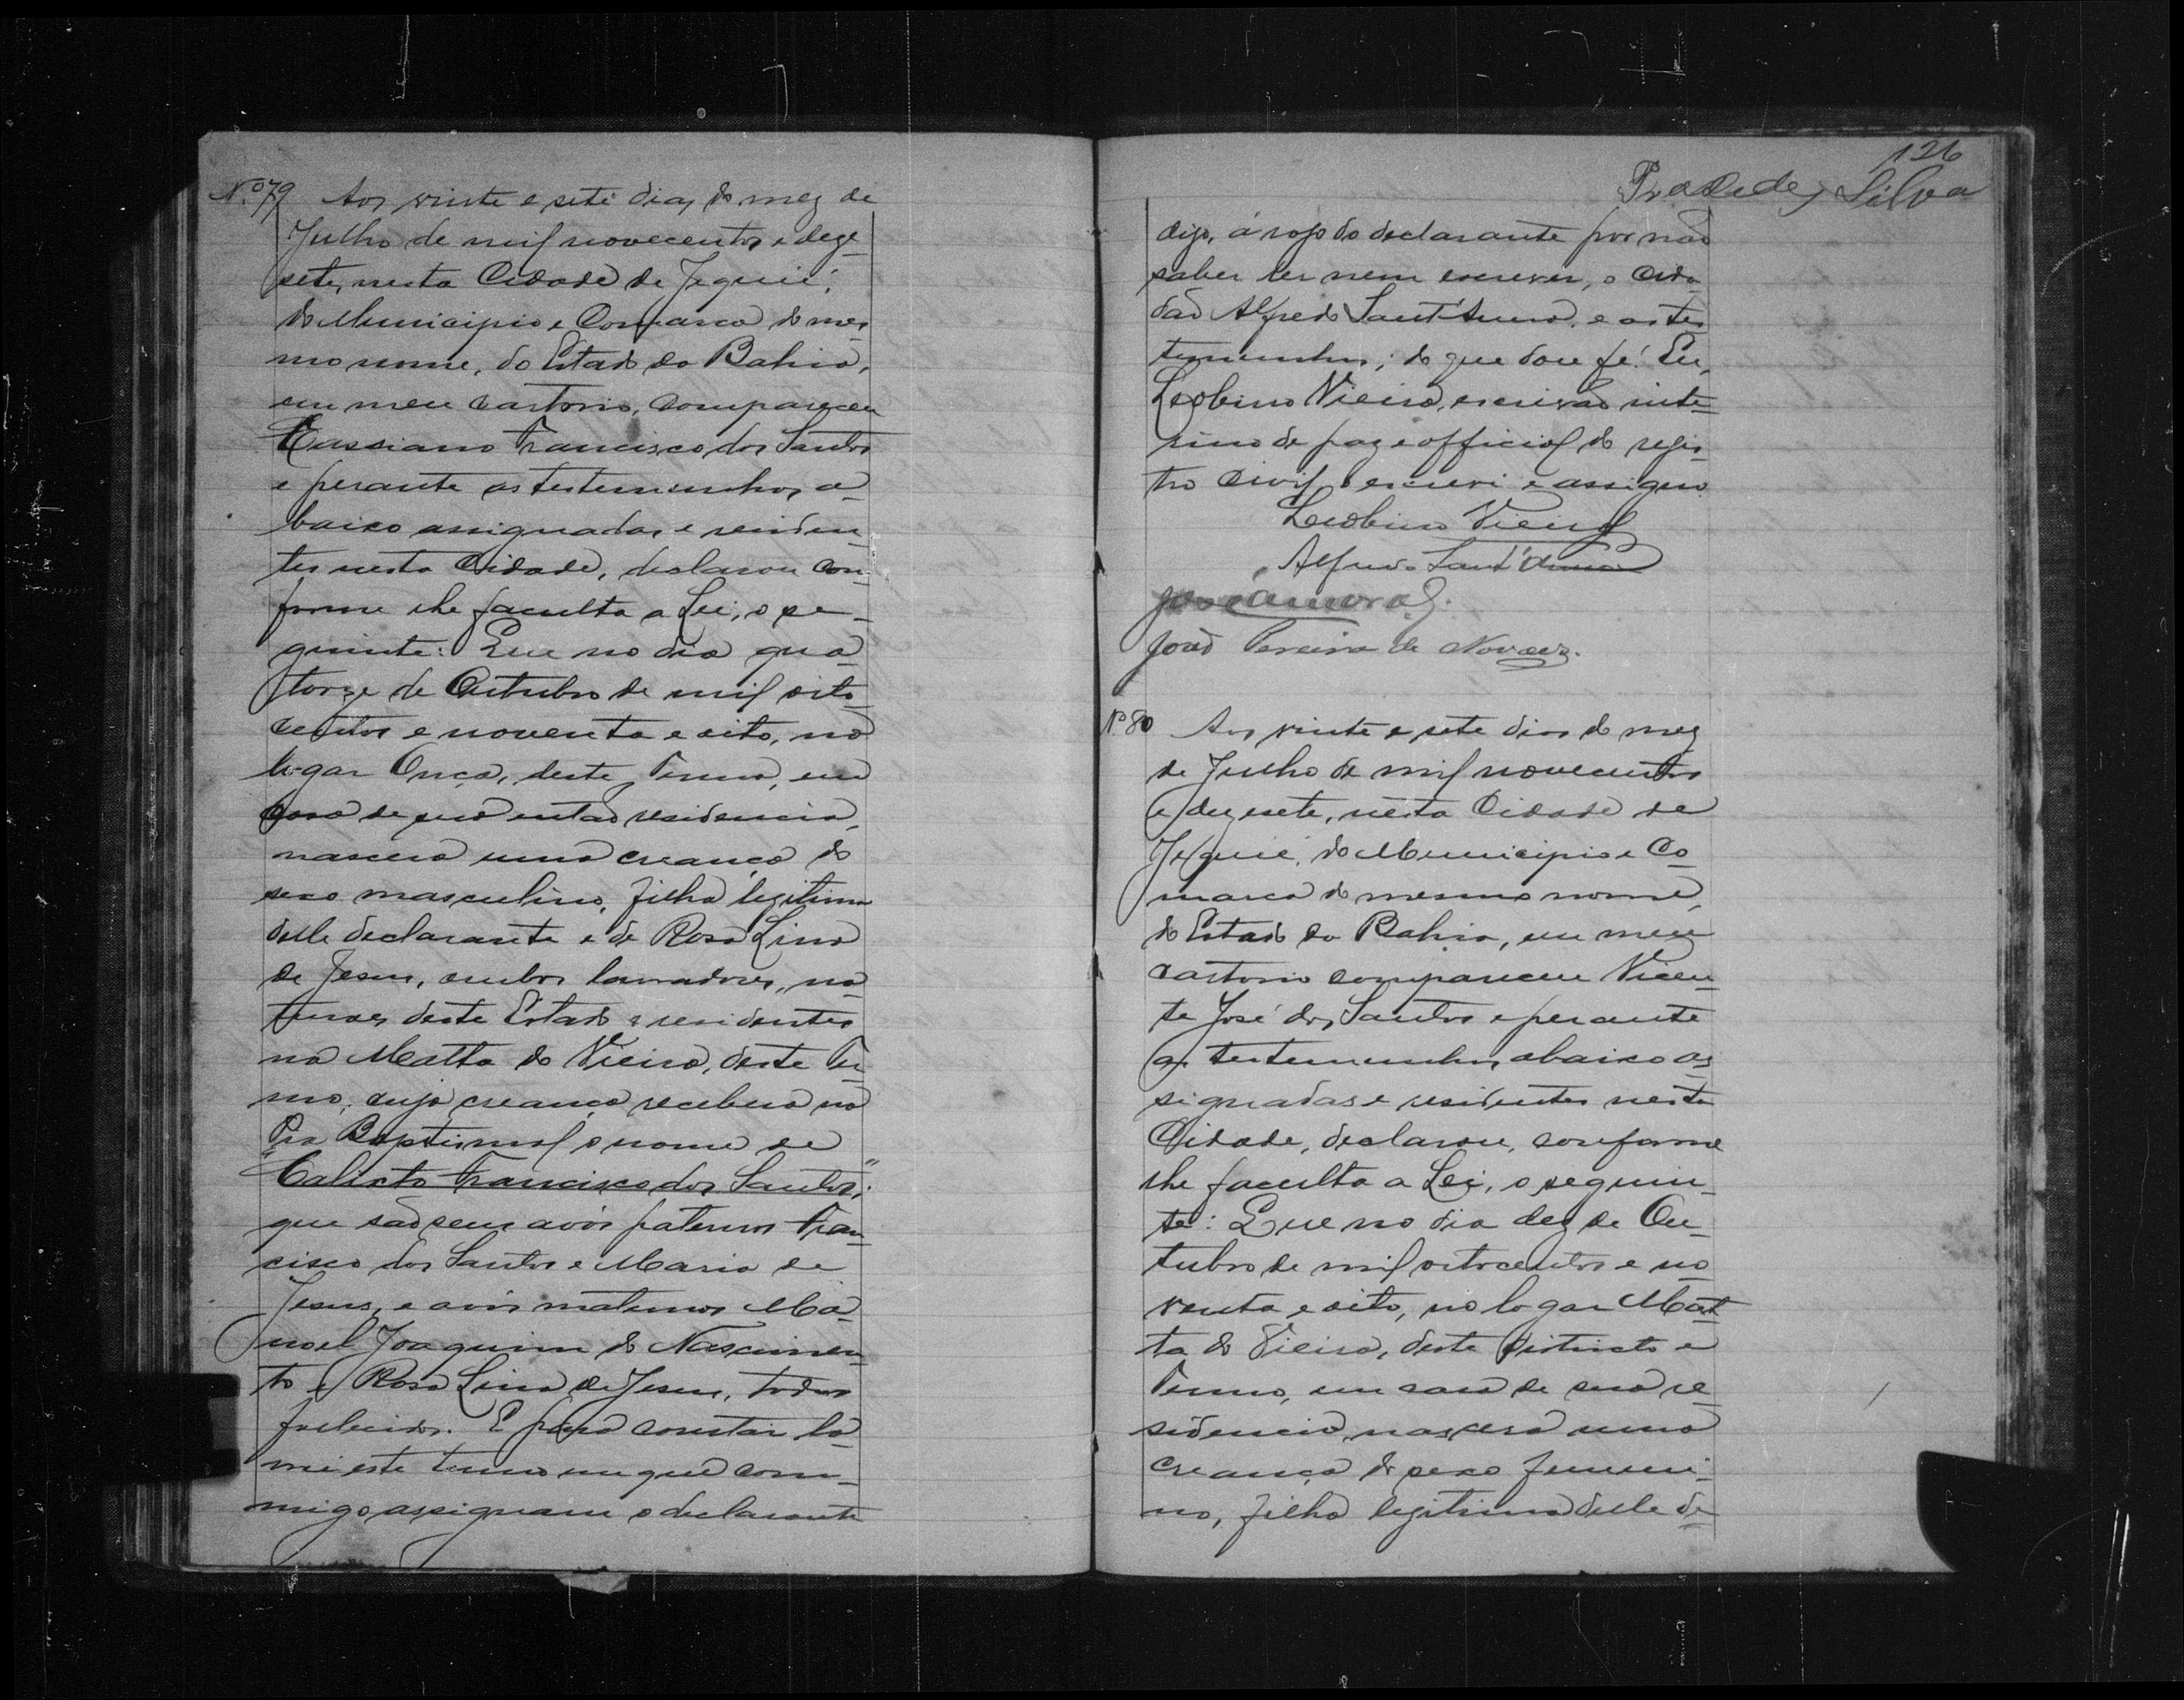 Nº 79 Aos vinte e sete dias do mez de
Julho de mil novecentos e deze-
sete, nesta Cidade de Jequié,
do Municipio e Comarca do mes-
mo nome, do Estado da Bahia,
em meu cartorio, compareceu
Cassiano Francisco dos Santos
e perante as testemunhas a-
baixo assignadas e residen-
tes nesta Cidade, declarou con-
forme lhe faculta a Lei, o se-
guinte: Que no dia qua-
torze de Outubro de mil oito-
centos e noventa e oito, no
logar Onça, deste Termo, em
casa de sua então residencia,
nascera uma creança do
sexo masculino, filha legitima
delle declarante e de Rosa Lina
de Jesus, ambos lavradores, na-
turaes deste Estado e residentes
na Matta do Vieira, deste Ter-
mo, cuja creança recebera na
Pia Baptismal o nome de
"Calixto Francisco dos Santos";
que são seus avós paternos Fran-
cisco dos Santos e Maria de
Jesus, e avós maternos Ma-
noel Joaquim do Nascimen-
to e Rosa Lina de Jesus, todos
fallecidos. E para constar la-
vrei este termo em que com-
migo assignam o declarante
126
Praxedes Silva
digo, á rogo do declarante por não
saber ler nem escrever, o cida-
dão Alfredo Sant'Anna, e as tes-
temunhas; do que dou fé. Eu,
Leobino Vieira, escrivão inte-
rino de paz e official do regis-
tro civil o escrevi e assigno.
Leobino Vieira
Alfredo Sant'Anna
José Amaral.
João Pereira de Novaes.
Nº 80 Aos vinte e sete dias do mez
de Julho de mil novecentos
e dezesete, nesta Cidade de
Jequié, do Municipio e Co-
marca do mesmo nome,
do Estado da Bahia, em meu
cartorio compareceu Vicen-
te José dos Santos e perante
as testemunhas abaixo as-
signadas e residentes nesta
Cidade, declarou, conforme
lhe faculta a Lei, o seguin-
te: Que no dia dez de Ou-
tubro de mil oitocentos e no-
venta e oito, no logar Mat-
ta do Vieira, deste districto e
Termo, em casa de sua re-
sidencia, nascera uma
creança do sexo femini-
no, filha legitima delle de-